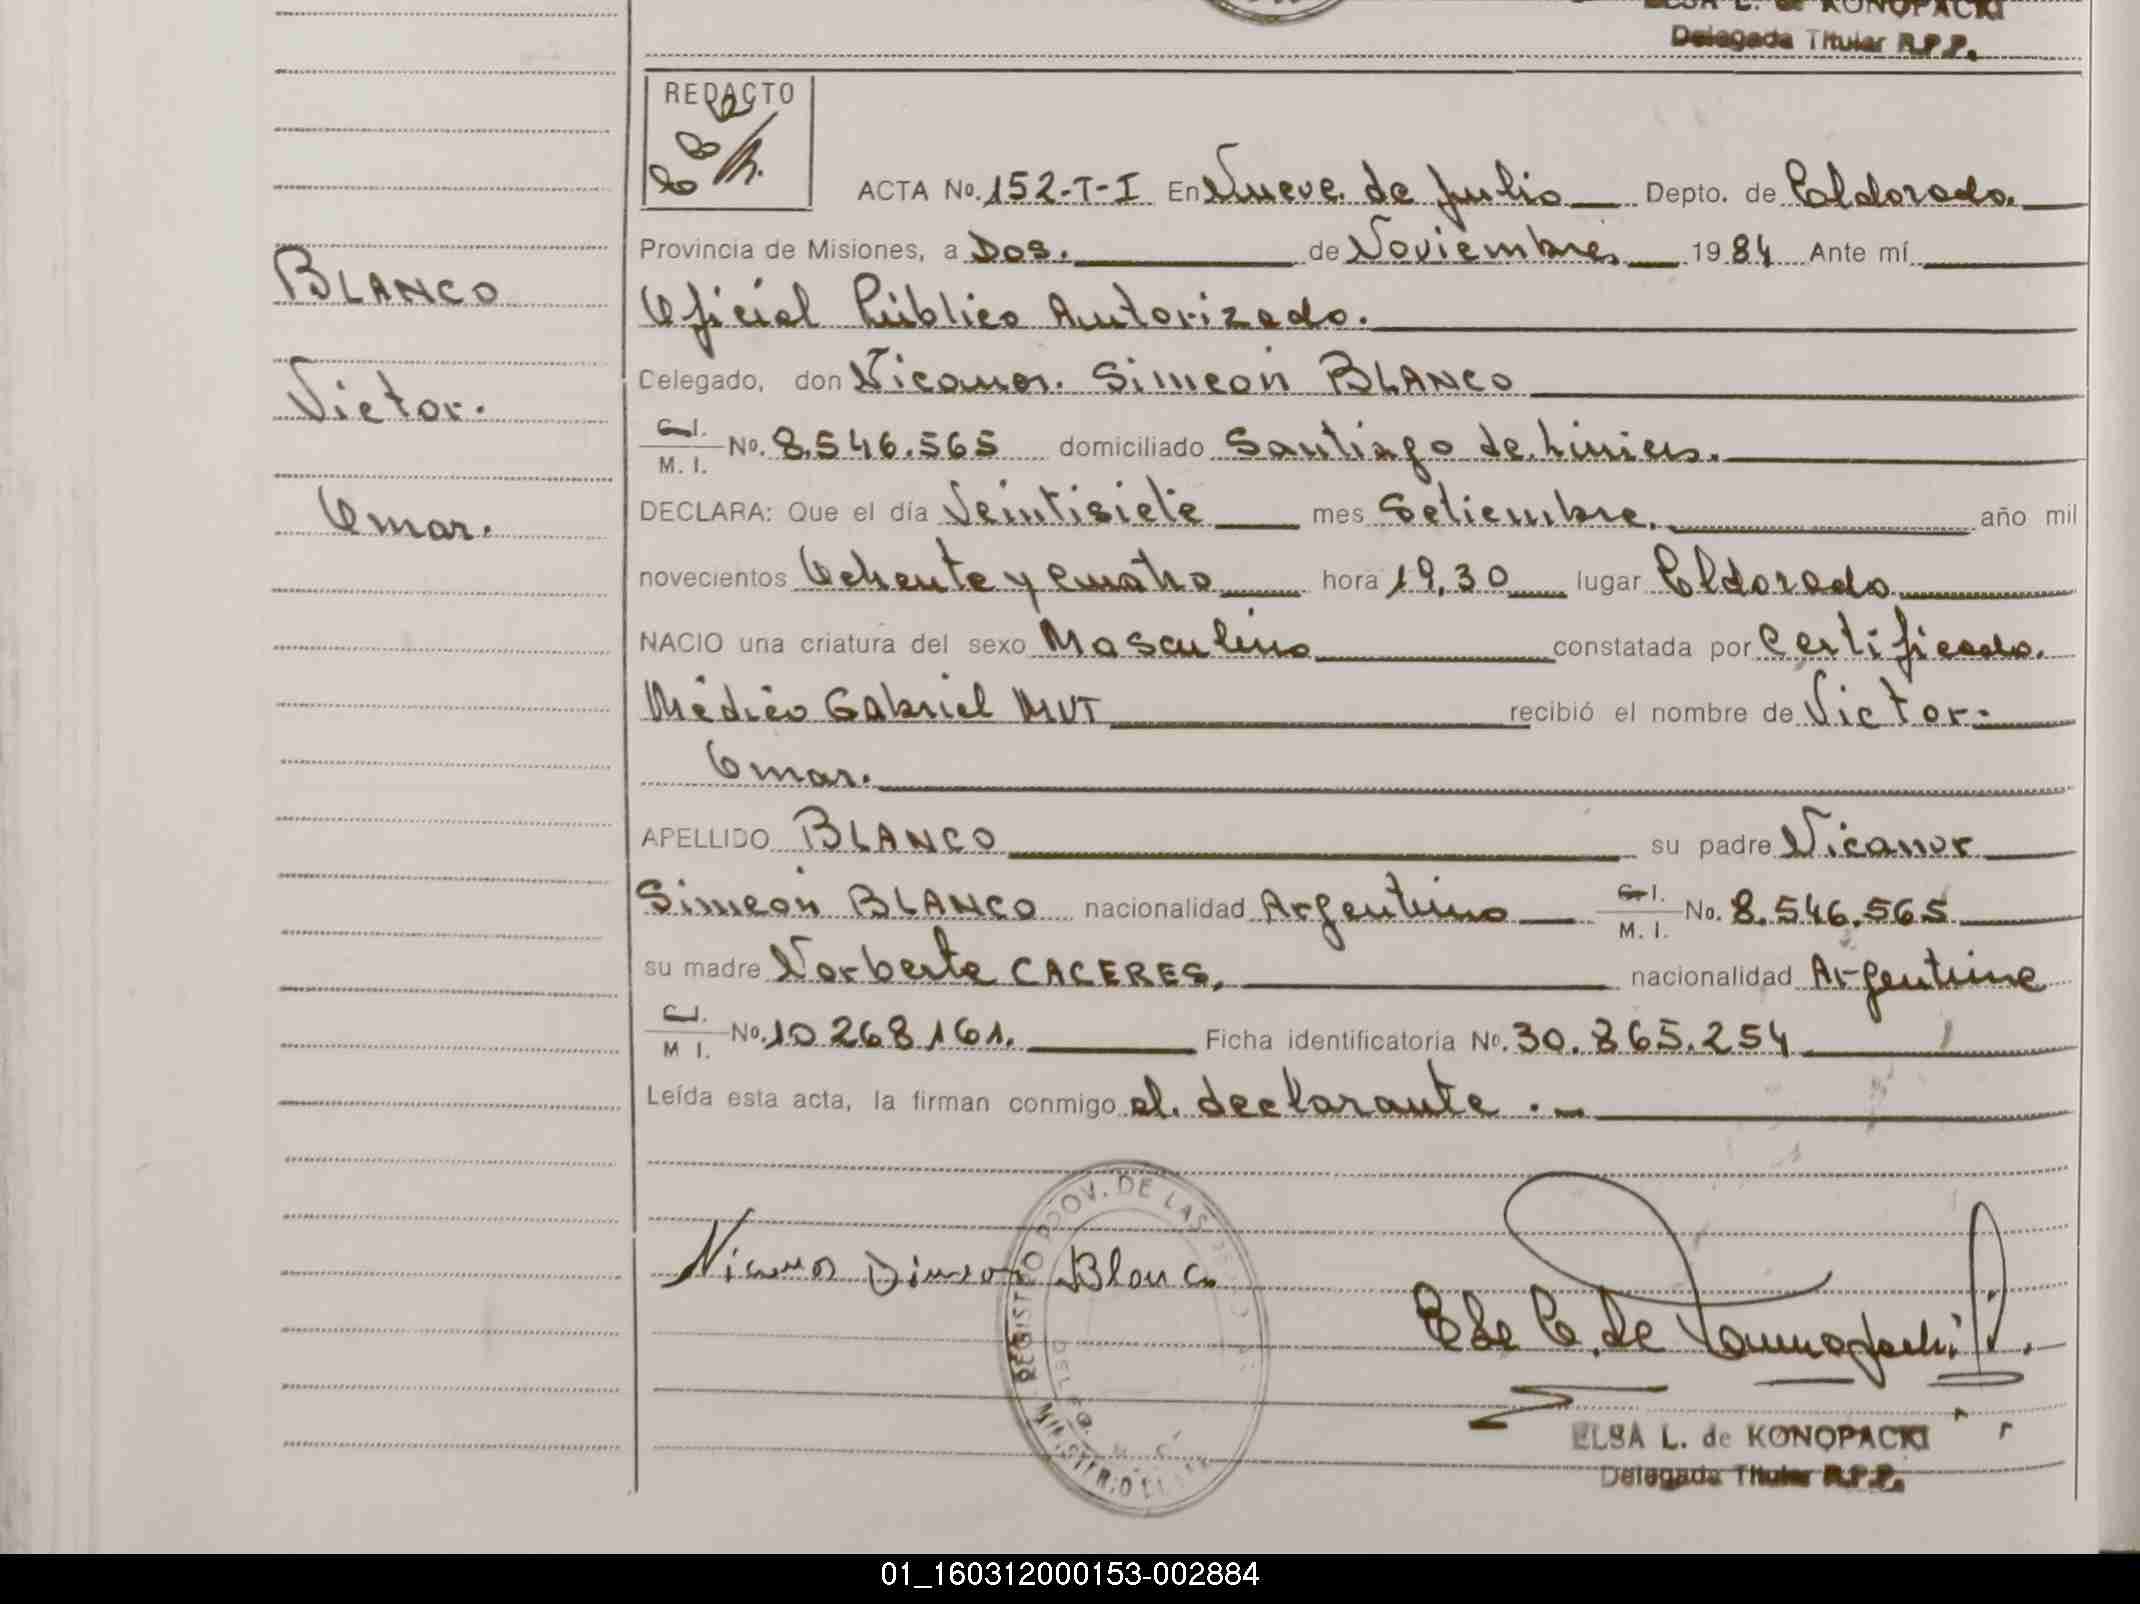 ELSA L. de KONOPACKI
Delegada Titular R.P.P.
REDACTO
ACTA No. 152-T-I En Nueve de Julio Depto. de Eldorado.
Provincia de Misiones, a Dos. de Noviembre, 1984 Ante mí
BLANCO
Oficial Público Autorizado.
Celegado, don Nicanor. Simeón BLANCO
Victor.
C.I.
M. I. No. 8.546.565 domiciliado Santiago de Liniers.
Omar.
DECLARA: Que el día Veintisiete mes Setiembre. año mil
novecientos Ochenta y Cuatro hora 19,30 lugar Eldorado
NACIO una criatura del sexo Masculino constatada por Certificado.
Médico Gabriel MUT recibió el nombre de Victor-
Omar.
APELLIDO BLANCO su padre Nicanor
Simeón BLANCO nacionalidad Argentino C.I.
M. I. No. 8.546.565
su madre Norberta CACERES, nacionalidad Argentina
C.I.
M I. No. 10.268.161. Ficha identificatoria No. 30.865.254
Leída esta acta, la firman conmigo el declarante .-
REGISTRO PROV. DE LAS
Nicanor Simeon Blanco
MINISTERIO
ELSA L. de KONOPACKI
Delegada Titular R.P.P.
01_160312000153-002884